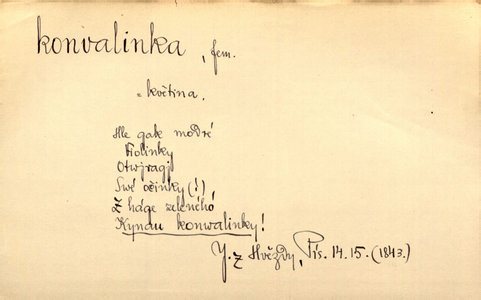 konvalinka, fem.
= květina.
Hle gak modré
Fiolinky
Otwjragj
Swé očinky (!)
Ze háge zeleného
Kynau konwalinky!
J. z Hvězdy, Pís. 14. 15. (1843.)